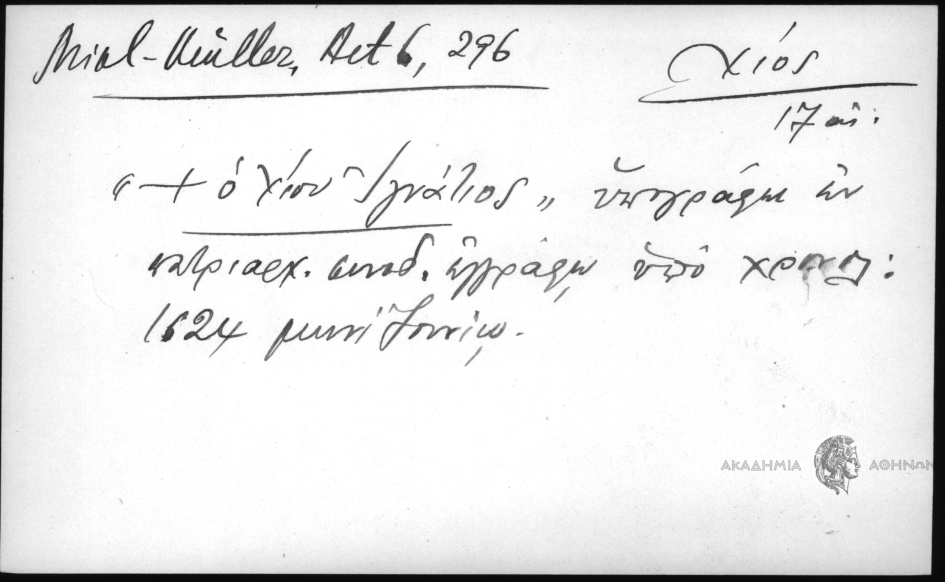 Mikl-Müller, Act 6, 296
Χίος
17 αἰ:
“+ ὁ Χίου Ἰγνάτιος„ ὑπογράφει ἐν
πατριαρχ. συνοδ. ἐγγράφῳ ὑπὸ χρονολ:
1624 μηνὶ Ἰουνίῳ.
ΑΚΑΔΗΜΙΑ ΑΘΗΝΩΝ